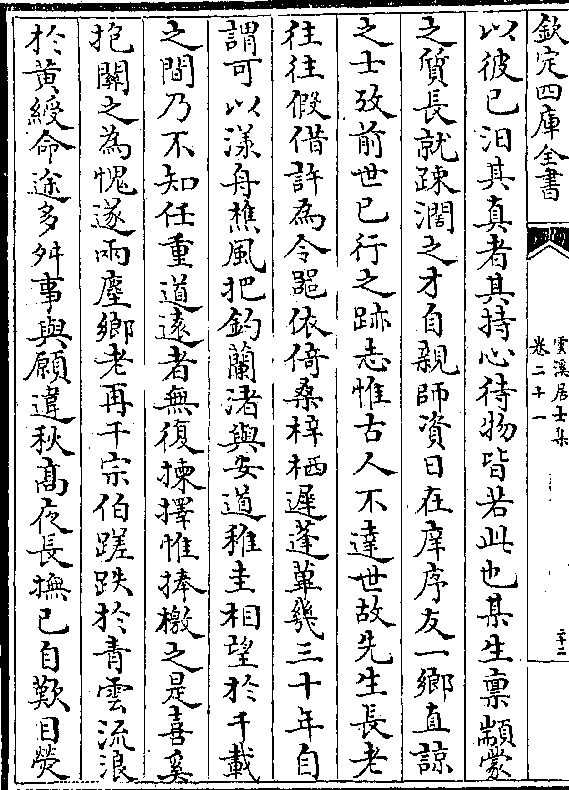 欽定四庫全書
雲溪居士集
卷二十一
二十二
以彼已汩其真者其持心待物皆若此也某生稟顓蒙
之質長就踈濶之才自親師資日在庠序友一鄉直諒
之士攷前世已行之跡志惟古人不達世故先生長老
往往假借許為令器依倚桑梓栖遲蓬蓽幾三十年自
謂可以漾舟樵風把釣蘭渚與安道稚圭相望於千載
之間乃不知任重道遠者無復揀擇惟捧檄之是喜奚
抱關之為愧遂兩塵鄉老再干宗伯蹉跌於青雲流浪
於黃綬命途多舛事與願違秋髙夜長撫已自歎目熒